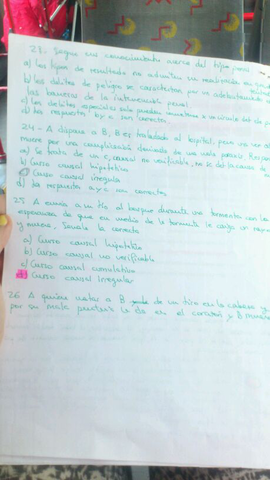 23. Según sus conocimientos acerca del tipo penal
a) los tipos de resultado no admiten su realización
b) los delitos de peligro se caracterizan por un adelantamiento
las barreras de la intervención penal.
c) los delitos especiales solo pueden
d) las respuestas b y c son correctas
24.- A dispara a B, B es trasladado al hospital, pero
muere por una complicación derivada de una
a) se trata de un c. causal no verificable, no se
b) Curso causal hipotético
c) Curso causal irregular
d) las respuestas a y c son correctas
25. A envía a su tío al bosque durante una tormenta con la
esperanza de que en medio de la tormenta le caiga un rayo
y muera. Señale la correcta
a) Curso causal hipotético
b) Curso causal no verificable
c) Curso causal cumulativo
Curso causal irregular
26 A quiere matar a B de un tiro en la cabeza y
por su mala puntería le da en el corazón y B muere